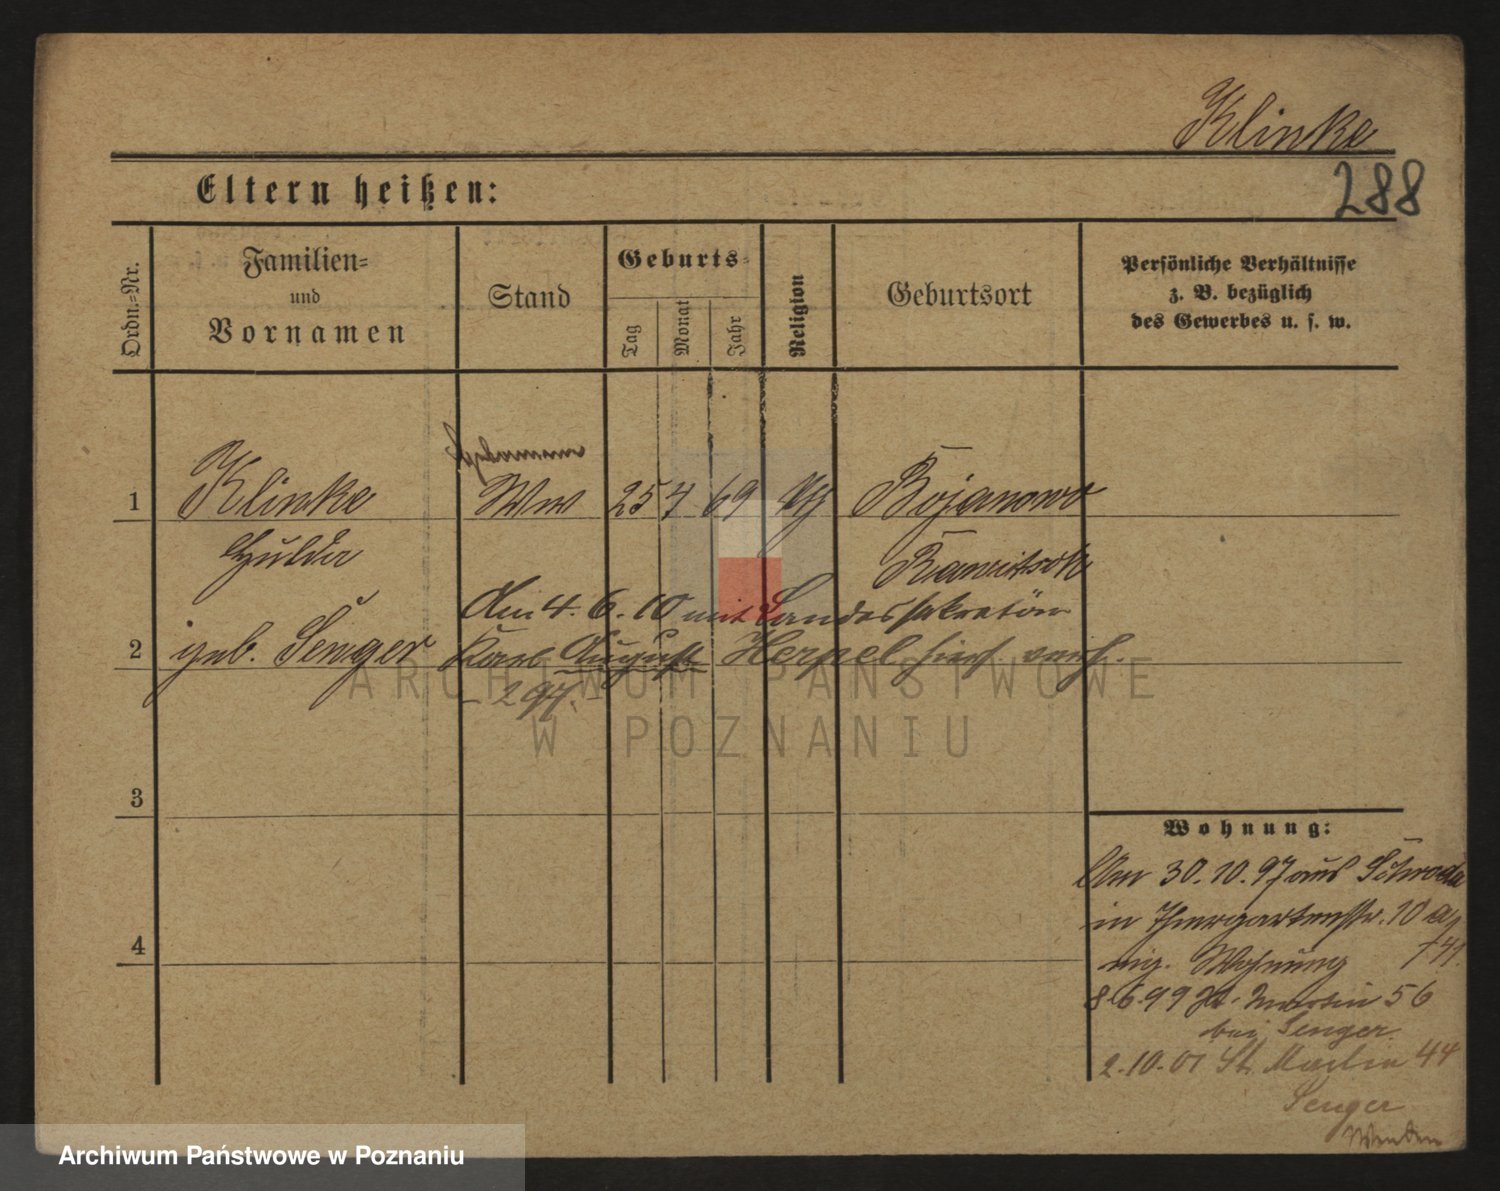 Klinke
288
Eltern heißen:
Ordn.-Nr.
Familien-
und
Vornamen
Stand
Geburts-
Tag
Monat
Jahr
Religion
Geburtsort
Persönliche Verhältnisse
z. B. bezüglich
des Gewerbes u. s. w.
1 Klinke Ww 25 7 69 Bojanowo
Hulda Rawitsch
Am 4. 6. 10 mit Landessekretär
2 geb. Senger Karl August Herpel hier verh.
- 297. -
3
4
Wohnung:
Am 30. 10. 97 aus Schroda
in Thiergartenstr. 10 a
eig. Wohnung
8.6.99 St. Martin 56
bei Senger.
2.10.01 St. Martin 44
Senger
Wenden
ARCHIWUM PAŃSTWOWE
W POZNANIU
Archiwum Państwowe w Poznaniu